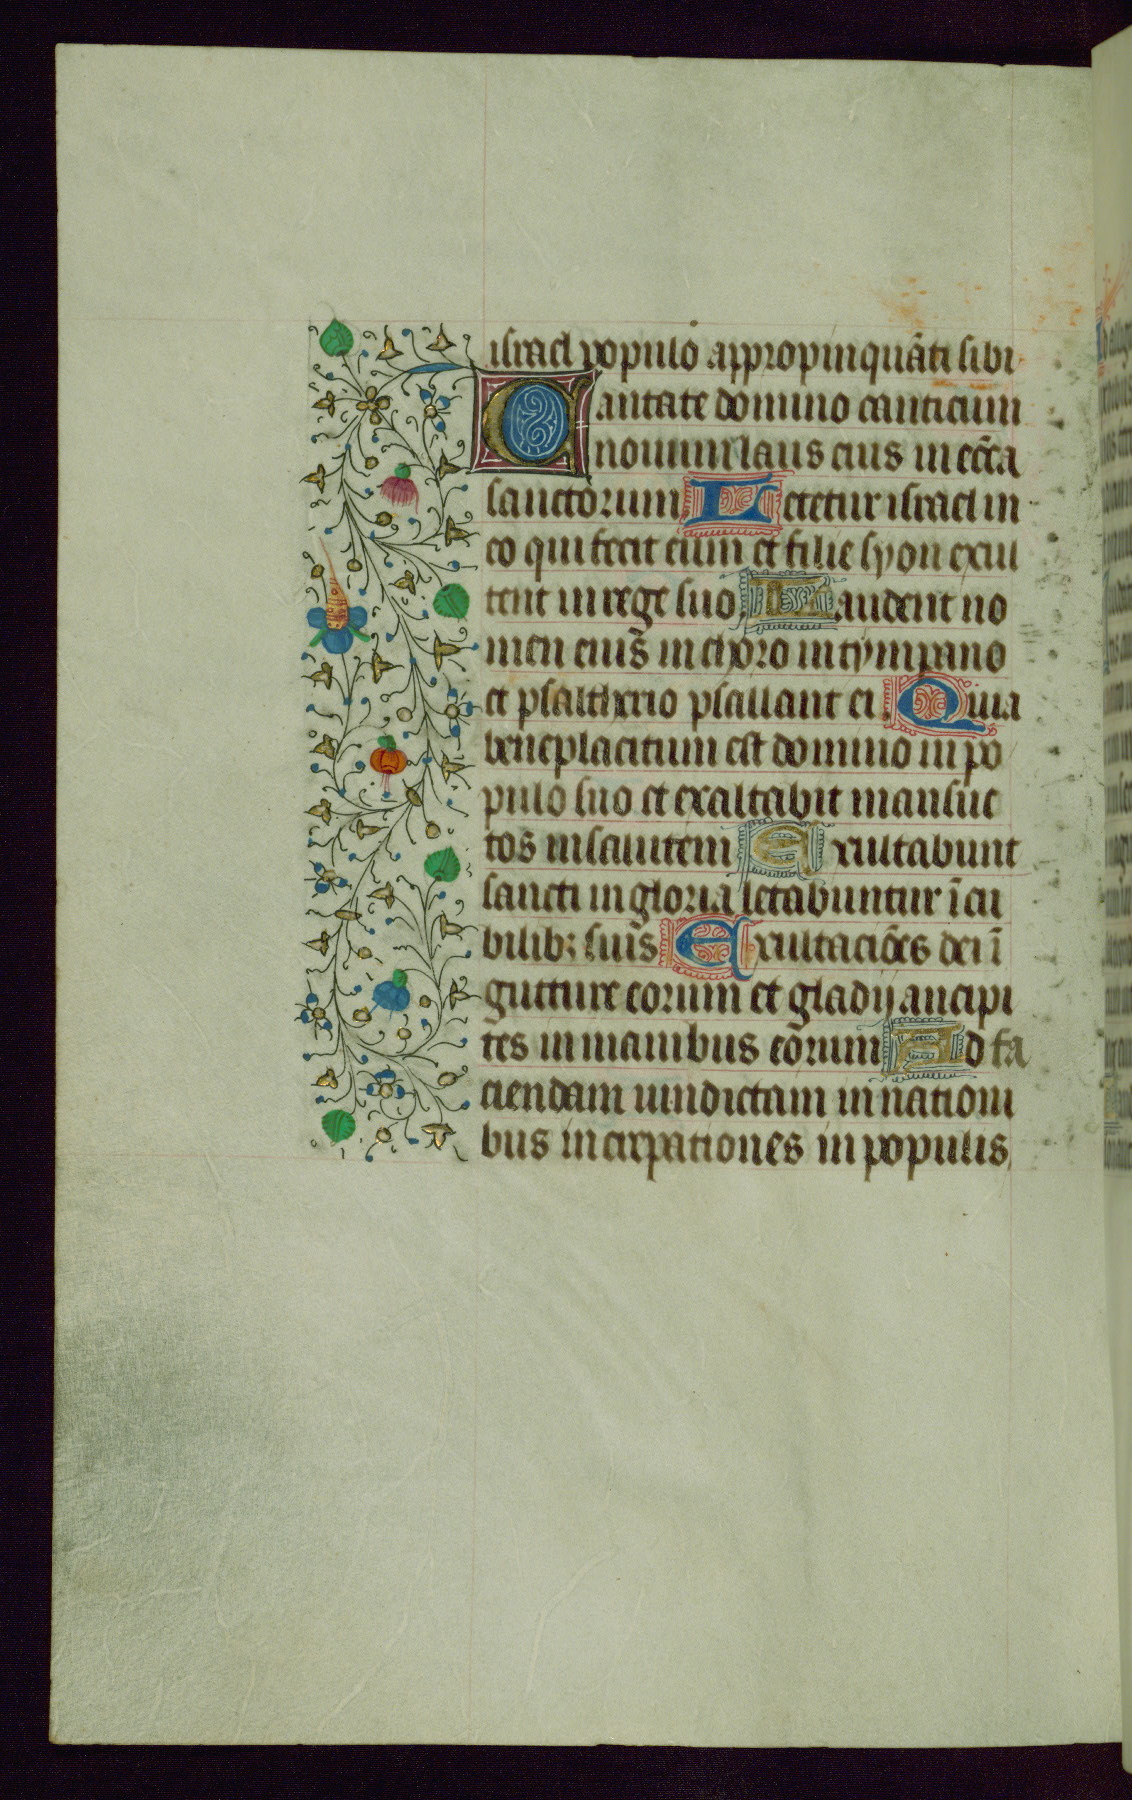 israel populo appropinquāti sibi
Cantate domino canticum
novum laus eius in ecc̄a
sanctorum Letetur israel in
eo qui fecit eum et filie syon exul
tent in rege suo Laudent no
men eius in choro in tympano
et psalterio psallant ei Quia
beneplacitum est domino in po
pulo suo et exaltabit mansue
tos in salutem Exultabunt
sancti in gloria letabuntur ī cu
bilibꝫ suis Exultaciōes dei ī
gutture eorum et gladij ancipi
tes in manibus eorum Ad fa
ciendam uindictam in nationi
bus increpationes in populis